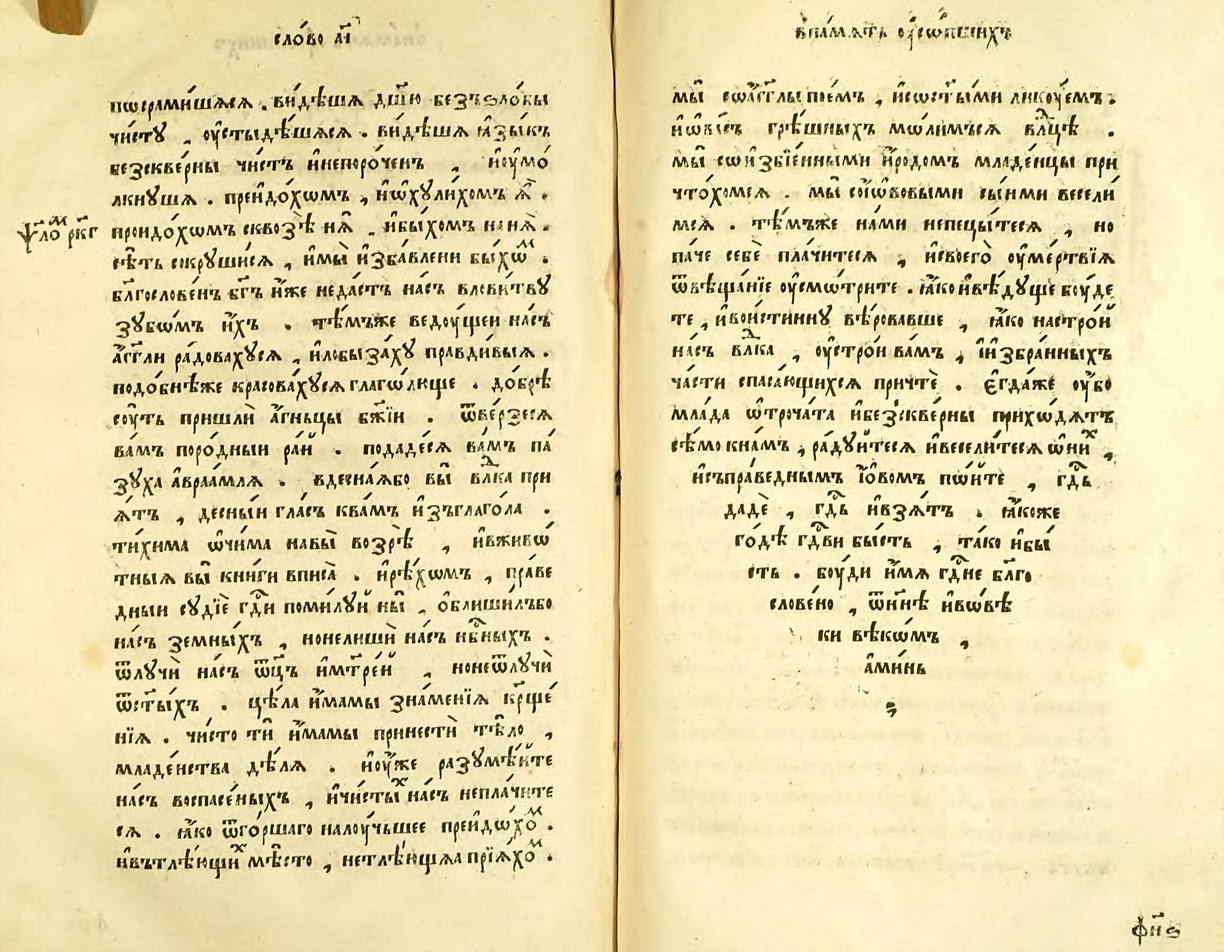 сло́во а҃і
пѡсрами́шѧсѧ . ви́дѣшѧ дш҃ю без̾ѕло́бы
чи́стꙋ , оу҆стыдѣ́шѧсѧ . ви́дѣшѧ ꙗ҆зы́къ
безскве́рны чи́стъ и҆непоро́ченъ , и҆оумо́
лкнꙋшѧ . преидо́хѡмъ , и҆ѡ҆хꙋли́хомъ ѧ҆̀ .
ѱало́м рк҃г
проидо́хѡмъ сквозѣ̀ нѧ̀ , и҆бы́хомъ нанѧ̀ .
сѣ́ть сокрꙋши́сѧ , и҆мы̀ и҆зба́влени бы́хѡм .
бл҃гослове́нъ бг҃ъ и҆́же недастъ на́съ влови́твꙋ
зꙋбѡ́мъ и҆́хъ . тѣ́мъже ведоу́щеи на́съ
а҆́гг҃ли ра́довахꙋсѧ , и҆лобыза́хꙋ пра́вди́выѧ .
подо́бнѣже красова́хꙋсѧ глаго́лище . до́брѣ
соу́ть пришлѝ а҆́гньцы бж҃їи . ѿве́рзесѧ
ва́мъ поро́дныи ра́й . подаде́сѧ ва́мъ па́
зꙋха а҆враа́млѧ . вдесна́ѧбо вы̀ влⷣка при
ѧ́тъ , десны́и гла́съ ква́мъ и҆зъглаго́ла .
ти́хима ѡ҆чи́ма навы̀ возрѣ̀ , и҆вживѡ́
тныѧ вы̀ кни́ги вписа̀ . и҆рѣ́хѡмъ , пра́ве
дныи сꙋдїѐ гдⷭ҇и поми́лꙋй ны̀ , о҆блиши́лъбо
на́съ земны́хъ , нонелишѝ на́съ нбⷭ҇ныхъ .
ѿлꙋчѝ на́съ ѿц҃ъ и҆мт҃рей , нонеѿлꙋчѝ
ѿст҃ы́хъ . цѣ́ла и҆́мамы зна́менїѧ крⷭ҇ще́
нїѧ . чи́сто ти̂ и҆́мамы принестѝ тѣ́ло ,
младе́нства дѣ́лѧ . и҆оу҆́же разꙋмѣ́йте
на́съ воспасе́ныхъ , и҆чи́стыⷯ на́съ непла́чите
сѧ . ꙗ҆́ко ѿго́ршаго налоу́чьшее преидѡ́хоⷨ .
и҆вътлѣ́ющиⷯ мѣ́сто , нетлѣ́ющѧѧ прїѧ́хоⷨ .
впа́мѧть оу҆со́пшихъ
мы̀ сѡа҆́гг҃лы пое́мъ , и҆сѡст҃ы́ми ликоу́емъ .
и҆ѡ҆ва́съ грѣ́шныхъ мѡ́лимъсѧ влⷣцѣ .
мы̀ сѡи҆збїе́нными и҆́родомъ младе́нцы при
что́хомсѧ . мы̀ соі҆ѡ́вовыми сы́нми весели́
мсѧ . тѣ́мъже на́ми непецы́тесѧ , но
па́че себѐ пла́читесѧ , и҆своего̀ оу҆ме́ртвїѧ
ѿвѣща́нїе оу҆смѡ́трите . ꙗ҆́ко и҆вѣ́дꙋще боу́де
те , и҆вои́стиннꙋ вѣ́ровавше , ꙗ҆́ко настро́й
на́съ влⷣка , оу҆стро́и ва́мъ , и҆и҆збра́нныхъ
ча́сти спаса́ющихсѧ причтѐ . є҆гда́же оу҆́бо
мла́да ѡ҆троча́та и҆без̾скве́рны прихѡ́дѧтъ
сѣ́мо кна́мъ , ра́дꙋйтесѧ и҆весели́тесѧ ѡ҆ни́ⷯ ,
и҆съпра́веднымъ і҆ѡ́вомъ пѡ́йте , гдⷭ҇ь
дадѐ , гдⷭ҇ь и҆взѧ́тъ . ꙗ҆́коже
го́дѣ гдⷭ҇ви бы́сть , та́ко и҆бы́
сть . боу́ди и҆́мѧ гдⷭ҇не бл҃го
слове́но , ѿнн҃ѣ и҆вѡ́вѣ
ки вѣкѡ́мъ ,
а҆ми́нь
фн҃ѕ